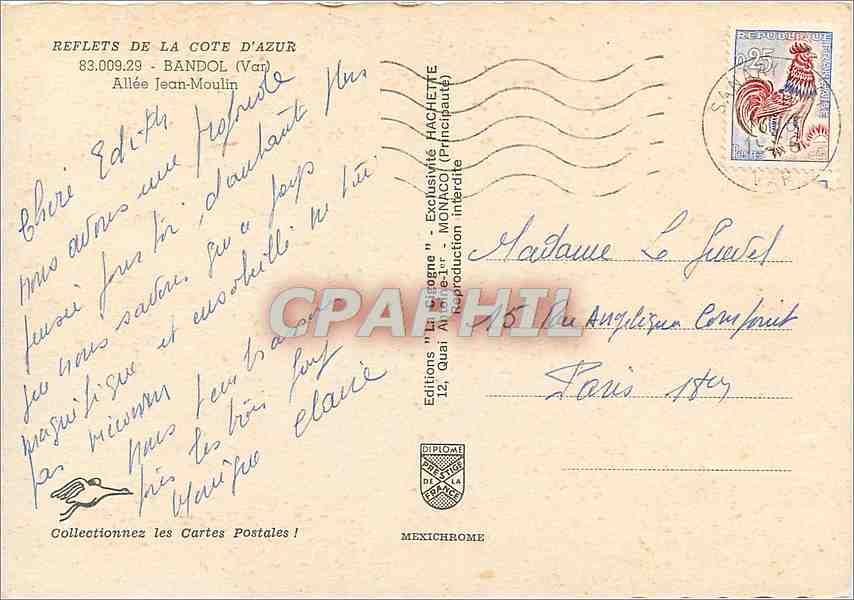 REFLETS DE LA COTE D'AZUR
83.009.29 - BANDOL (Var)
Allée Jean-Moulin
Chère Edith
nous avons une profonde
pensée pour toi, d'autant plus
que nous savons que ce pays
magnifique et ensoleillé ne t'est
pas inconnu
nous t'embrassons
très très fort
Monique Claire
Collectionnez les Cartes Postales !
Editions "La Cigogne" - Exclusivité HACHETTE
12, Quai Antoine-1er - MONACO (Principauté)
Reproduction interdite
DIPLOME
PRESTIGE
DE LA
FRANCE
MEXICHROME
REPUBLIQUE FRANCAISE
0,25
SANARY
VAR
Madame Le
15 Rue Angélique Compoint
Paris 18e
CPAPHIL